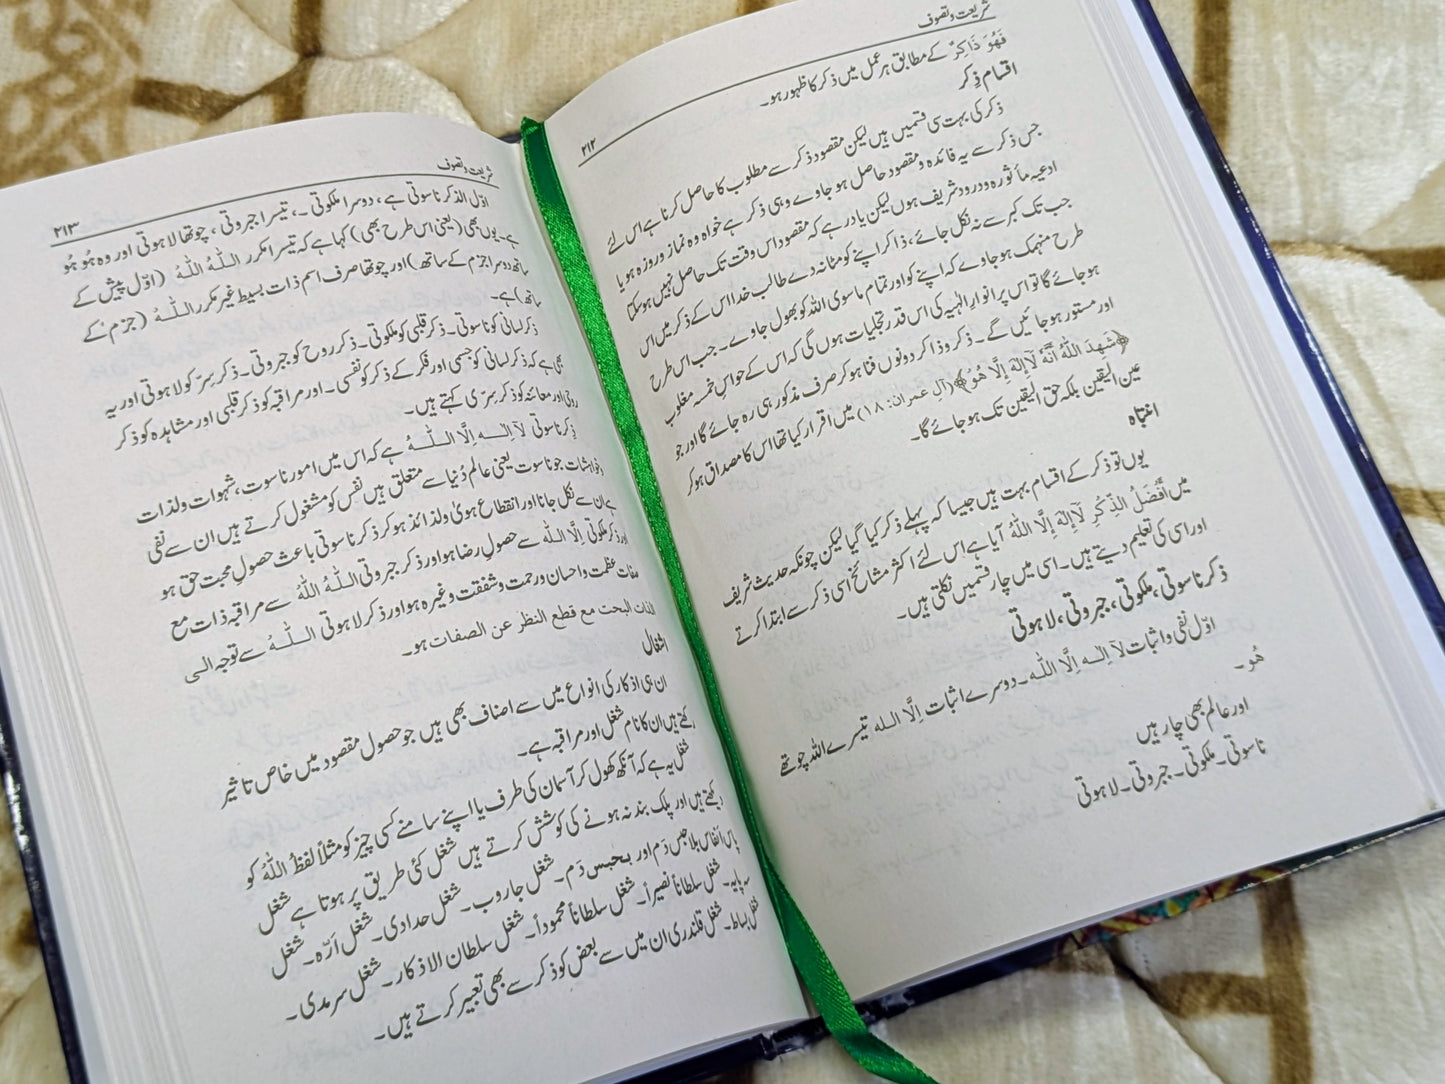 شریعت و تصوف
۲۱۲
فَهُوَ ذَاكِرٌ کے مطابق ہر عمل میں ذکر کا ظہور ہو۔
اقسام ذِکر
ذکر کی بہت سی قسمیں ہیں لیکن مقصود ذکر سے مطلوب کا حاصل کرنا ہے اس لئے
جس ذکر سے یہ فائدہ و مقصود حاصل ہو جاوے وہی ذکر ہے خواہ وہ نماز و روزہ ہو یا
ادعیہ ماثورہ و درود شریف ہوں لیکن یاد رہے کہ مقصود اس وقت تک حاصل نہیں ہو سکتا
جب تک کبر سے نہ نکل جائے، ذاکر اپنے کو مٹا نہ دے طالب خدا اس کے ذکر میں اس
طرح منہمک ہو جاوے کہ اپنے کو اور تمام ماسوی اللہ کو بھول جاوے۔ جب اس طرح
ہو جائے گا تو اس پر انوارِ الٰہیہ کی اس قدر تجلیات ہوں گی کہ اس کے حواس خمسہ مغلوب
اور مستور ہو جائیں گے۔ ذکر و ذاکر دونوں فنا ہو کر صرف مذکور ہی رہ جائے گا اور جو
﴿شَهِدَ اللهُ أَنَّهُ لَا إِلٰهَ إِلَّا هُوَ﴾ (آل عمران: ۱۸) میں اقرار کیا تھا اس کا مصداق ہو کر
عین الیقین بلکہ حق الیقین تک ہو جائے گا۔
انتباہ
یوں تو ذکر کے اقسام بہت ہیں جیسا کہ پہلے ذکر کیا گیا لیکن چونکہ حدیث شریف
میں أَفْضَلُ الذِّكْرِ لَا إِلٰهَ إِلَّا اللهُ آیا ہے اس لئے اکثر مشائخ اسی ذکر سے ابتدا کرتے
اور اسی کی تعلیم دیتے ہیں۔ اسی میں چار قسمیں نکلتی ہیں۔
ذکر ناسوتی، ملکوتی، جبروتی، لاہوتی
اوّل نفی و اثبات لَا اِلٰهَ اِلَّا اللّٰه۔ دوسرے اثبات اِلَّا اللّٰه تیسرے اللہ چوتھے
هُو۔
اور عالم بھی چار ہیں
ناسوتی۔ ملکوتی۔ جبروتی۔ لاہوتی
شریعت و تصوف
۲۱۳
اوّل الذکر ناسوتی ہے، دوسرا ملکوتی۔، تیسرا جبروتی، چوتھا لاہوتی اور وہ ھُو ھُو
ہے۔ یوں بھی (یعنی اس طرح بھی) کہا ہے کہ تیسرا مکرر اَللّٰهُ اَللّٰهُ (اوّل پیش کے
ساتھ دوسرا جزم کے ساتھ) اور چوتھا صرف اسم ذات بسیط غیر مکرر اَللّٰهُ (جزم کے
ساتھ) ہے۔
ذکر لسانی کو ناسوتی۔ ذکر قلبی کو ملکوتی۔ ذکر روح کو جبروتی۔ ذکر سِرّ کو لاہوتی اور یہ
بھی ہے کہ ذکر لسانی کو جسمی اور فکر کے ذکر کو نفسی۔ اور مراقبہ کو ذکر قلبی اور مشاہدہ کو ذکر
روحی اور معائنہ کو ذکر سِرّی کہتے ہیں۔
ذکر ناسوتی لَا اِلٰهَ اِلَّا اللّٰهُ ہے کہ اس میں امور ناسوت، شہوات و لذات
و خواہشات جو ناسوت یعنی عالم دُنیا سے متعلق ہیں نفس کو مشغول کرتے ہیں ان سے نفی
ہے ان سے نکل جانا اور انقطاع ہویٰ و لذائذ ہو کر ذکر ناسوتی باعث حصولِ محبت حق ہو
اور ذکر ملکوتی اِلَّا اللّٰه سے حصولِ رضا ہو اور ذکر جبروتی اَللّٰهُ اَللّٰهُ سے مراقبہ ذات مع
صفات عظمت و احسان و رحمت و شفقت وغیرہ ہو اور ذکر لاہوتی اَللّٰهُ سے توجہ الی
الذات البحت مع قطع النظر عن الصفات ہو۔
اشغال
ان ہی اذکار کی انواع میں سے اصناف بھی ہیں جو حصول مقصود میں خاص تاثیر
رکھتے ہیں ان کا نام شغل اور مراقبہ ہے۔
شغل یہ ہے کہ آنکھ کھول کر آسمان کی طرف یا اپنے سامنے کسی چیز کو مثلاً لفظُ اللّٰهُ کو
دیکھتے ہیں اور پلک بند نہ ہونے کی کوشش کرتے ہیں شغل کئی طریق پر ہوتا ہے شغل
پاس اَنفاس بلا حبس دَم اور بحبس دَم۔ شغل جاروب۔ شغل حدادی۔ شغل اَرّہ۔ شغل
سہ پایہ۔ شغل سلطاناً نصیراً۔ شغل سلطاناً محموداً۔ شغل سلطان الاذکار۔ شغل سرمدی۔
شغل بساط۔ شغل قلندری ان میں سے بعض کو ذکر سے بھی تعبیر کرتے ہیں۔